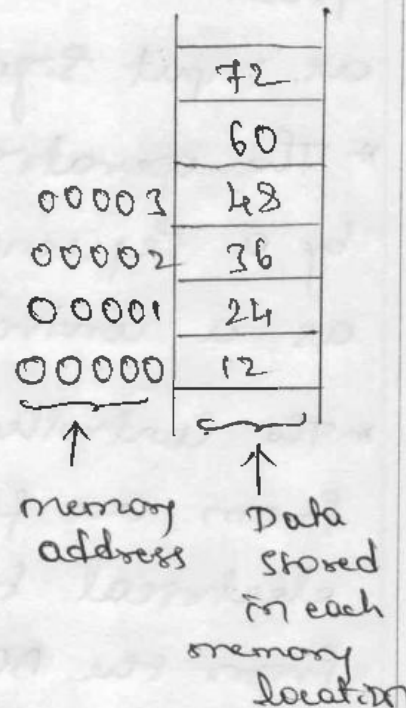 72
60
00003 48
00002 36
00001 24
00000 12
memory
address
Data
stored
in each
memory
location